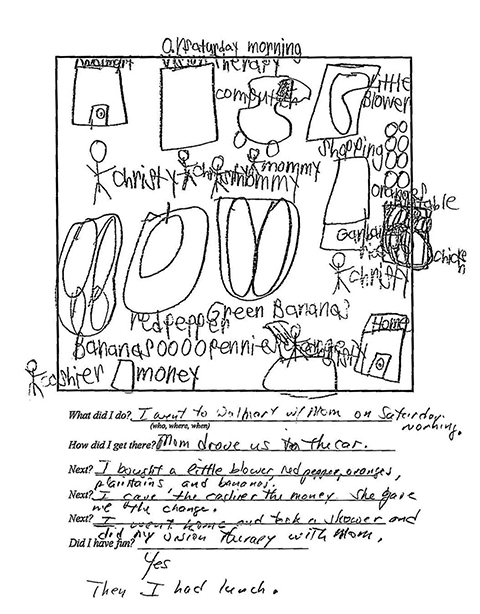 On saturday morning
Walmart
vision therapy
computich
Little
Blower
shopping
christy christy mommy
mommy
oranges
vegetable
chicken
christy
redpepper
Green Bananas
Home
Bananas 0000 pennies christy
cashier money
What did I do? I went to Walmart w/ Mom on Saturday
(who, where, when) morning.
How did I get there? Mom drove us in the car.
Next? I bought a little blower, red pepper, oranges,
plaintains and bananas.
Next? I gave the cashier the money she gave
me the change.
Next? I went home and took a shower and
did my vision therapy with Mom.
Did I have fun?
Yes
Then I had lunch.